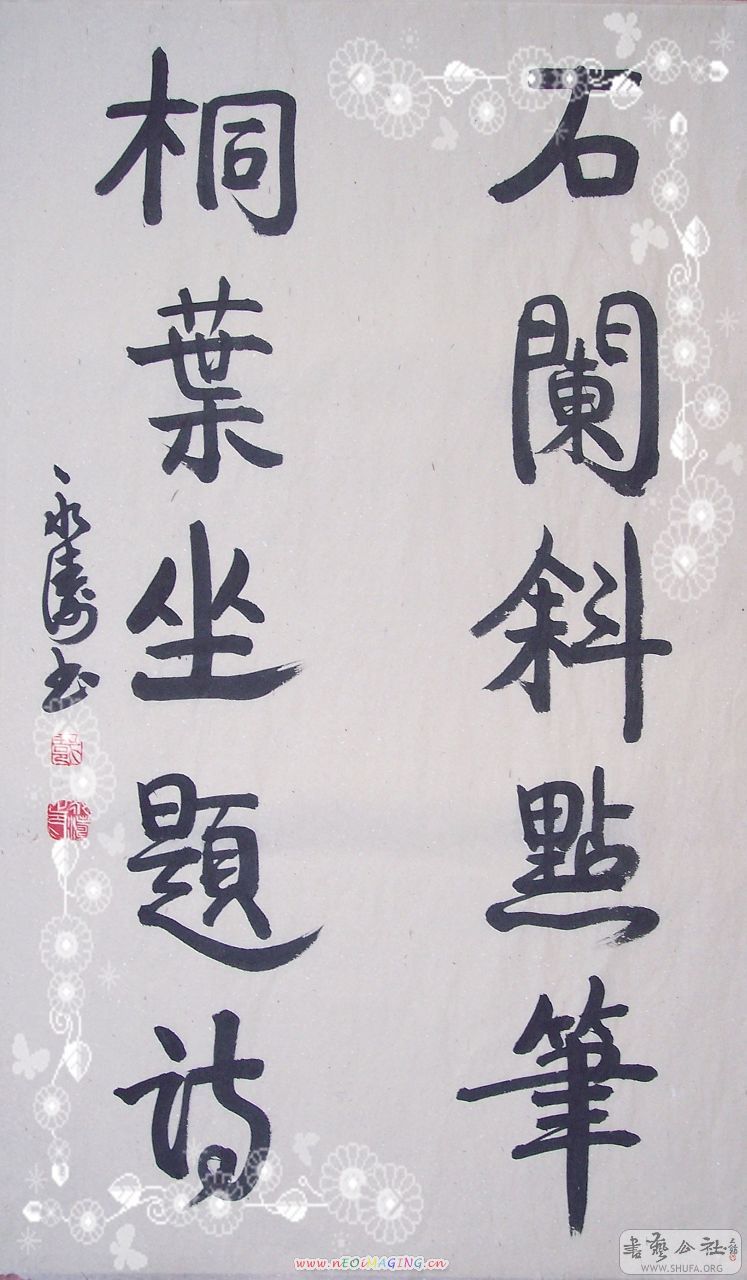 石闌斜點筆
桐葉坐題詩
永濤书
www.nEOiMAGING.cn
書藝公社
WWW.SHUFA.ORG